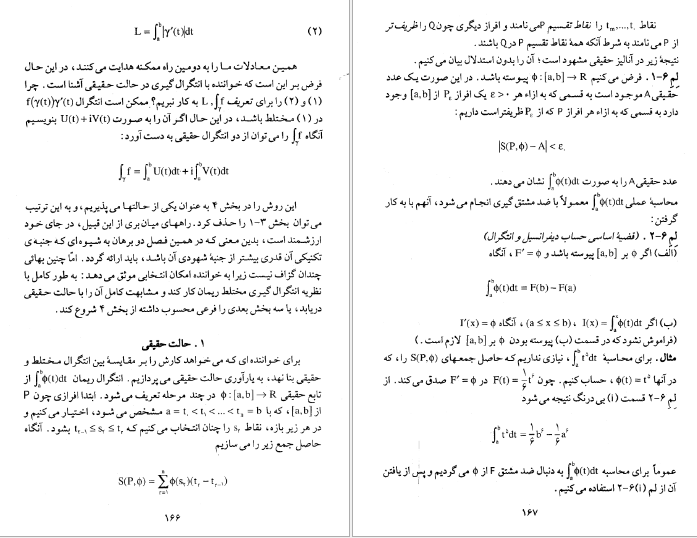 L = ∫ₐᵇ |γ′(t)|dt (۲)
همین معادلات ما را به دومین راه ممکنه هدایت می‌کنند، در این حال
فرض بر این است که خواننده با انتگرال گیری در حالت حقیقی آشنا است. چرا
(۱) و (۲) را برای تعریف ∫ᵧf، L به کار نبریم؟ ممکن است انتگرال f(γ(t))γ′(t)
در (۱) مختلط باشد، در این حال اگر آن را به صورت U(t)+iV(t) بنویسیم
آنگاه ∫ᵧf را می‌توان از دو انتگرال حقیقی به دست آورد:
∫ᵧf = ∫ₐᵇU(t)dt + i∫ₐᵇV(t)dt
این روش را در بخش ۴ به عنوان یکی از حالتها می‌پذیریم، و به این ترتیب
می‌توان بخش ۳-۱ را حذف کرد. راههای میان‌بری از این قبیل، در جای خود
ارزشمند است، بدین معنی که در همین فصل دو برهان به شیوه‌ای که جنبه‌ی
تکنیکی آن قدری بیشتر از جنبهٔ شهودی آن باشد، باید ارائه گردد. امّا چنین بهائی
چندان گزاف نیست زیرا به خواننده امکان انتخابی موثق می‌دهد: به طور کامل با
نظریه انتگرال گیری مختلط ریمان کار کند و مشابهت کامل آن را با حالت حقیقی
دریابد، یا سه بخش بعدی را فرعی محسوب داشته از بخش ۴ شروع کند.
۱. حالت حقیقی
برای خواننده‌ای که می‌خواهد کارش را بر مقایسهٔ بین انتگرال مختلط و
حقیقی بنا نهد، به یادآوری حالت حقیقی می‌پردازیم. انتگرال ریمان ∫ₐᵇφ(t)dt از
تابع حقیقی φ:[a,b]→R در چند مرحله تعریف می‌شود. ابتدا افرازی چون P
از [a,b]، که با a = t₀ < t₁ < ... < tₙ = b مشخص می‌شود، اختیار می‌کنیم و
در هر زیر بازه، نقاط sᵣ را چنان انتخاب می‌کنیم که tᵣ₋₁ ≤ sᵣ ≤ tᵣ بشود. آنگاه
حاصل جمع زیر را می سازیم
S(P,φ) = Σφ(sᵣ)(tᵣ − tᵣ₋₁)
۱۶۶
نقاط t₀,...,tₘ را نقاط تقسیم P می نامند و افراز دیگری چون Q را ظریف تر
از P می نامند به شرط آنکه همهٔ نقاط تقسیم P در Q باشند.
نتیجهٔ زیر در آنالیز حقیقی مشهود است؛ آن را بدون استدلال بیان می‌کنیم.
لم ۶-۱. فرض می‌کنیم φ:[a,b]→R پیوسته باشد. در این صورت یک عدد
حقیقی A موجود است به قسمی که به ازاء هر ε>۰ یک افراز Pε از [a,b] وجود
دارد به قسمی که به ازاء هر افراز P که از Pε ظریفتر است داریم:
|S(P,φ)−A| < ε.
عدد حقیقی A را به صورت ∫ₐᵇφ(t)dt نشان می دهند.
محاسبهٔ عملی ∫ₐᵇφ(t)dt معمولاً با ضد مشتق گیری انجام می‌شود، آنهم با به کار
گرفتن:
لم ۶-۲. (قضیهٔ اساسی حساب دیفرانسیل و انتگرال)
(الف) اگر φ بر [a,b] پیوسته باشد و F′ = φ، آنگاه
∫ₐᵇφ(t)dt = F(b) − F(a)
(ب) اگر I(x) = ∫φ(t)dt، (a ≤ x ≤ b)، آنگاه I′(x) = φ
(فراموش نشود که در قسمت (ب) پیوسته بودن φ بر [a,b] لازم است.)
مثال. برای محاسبهٔ ∫ₐᵇt⁵dt، نیازی نداریم که حاصل جمعهای S(P,φ) را، که
در آنها φ(t) = t⁵، حساب کنیم. چون F(t) = ⅙t⁶ در F′ = φ صدق می‌کند. از
لم ۶-۲ قسمت (i) بی‌درنگ نتیجه می‌شود
∫ₐᵇt⁵dt = ⅙b⁶ − ⅙a⁶
عموماً برای محاسبه ∫ₐᵇφ(t)dt به دنبال ضد مشتق F از φ می گردیم و پس از یافتن
آن از لم (i) ۶-۲ استفاده می‌کنیم.
۱۶۷